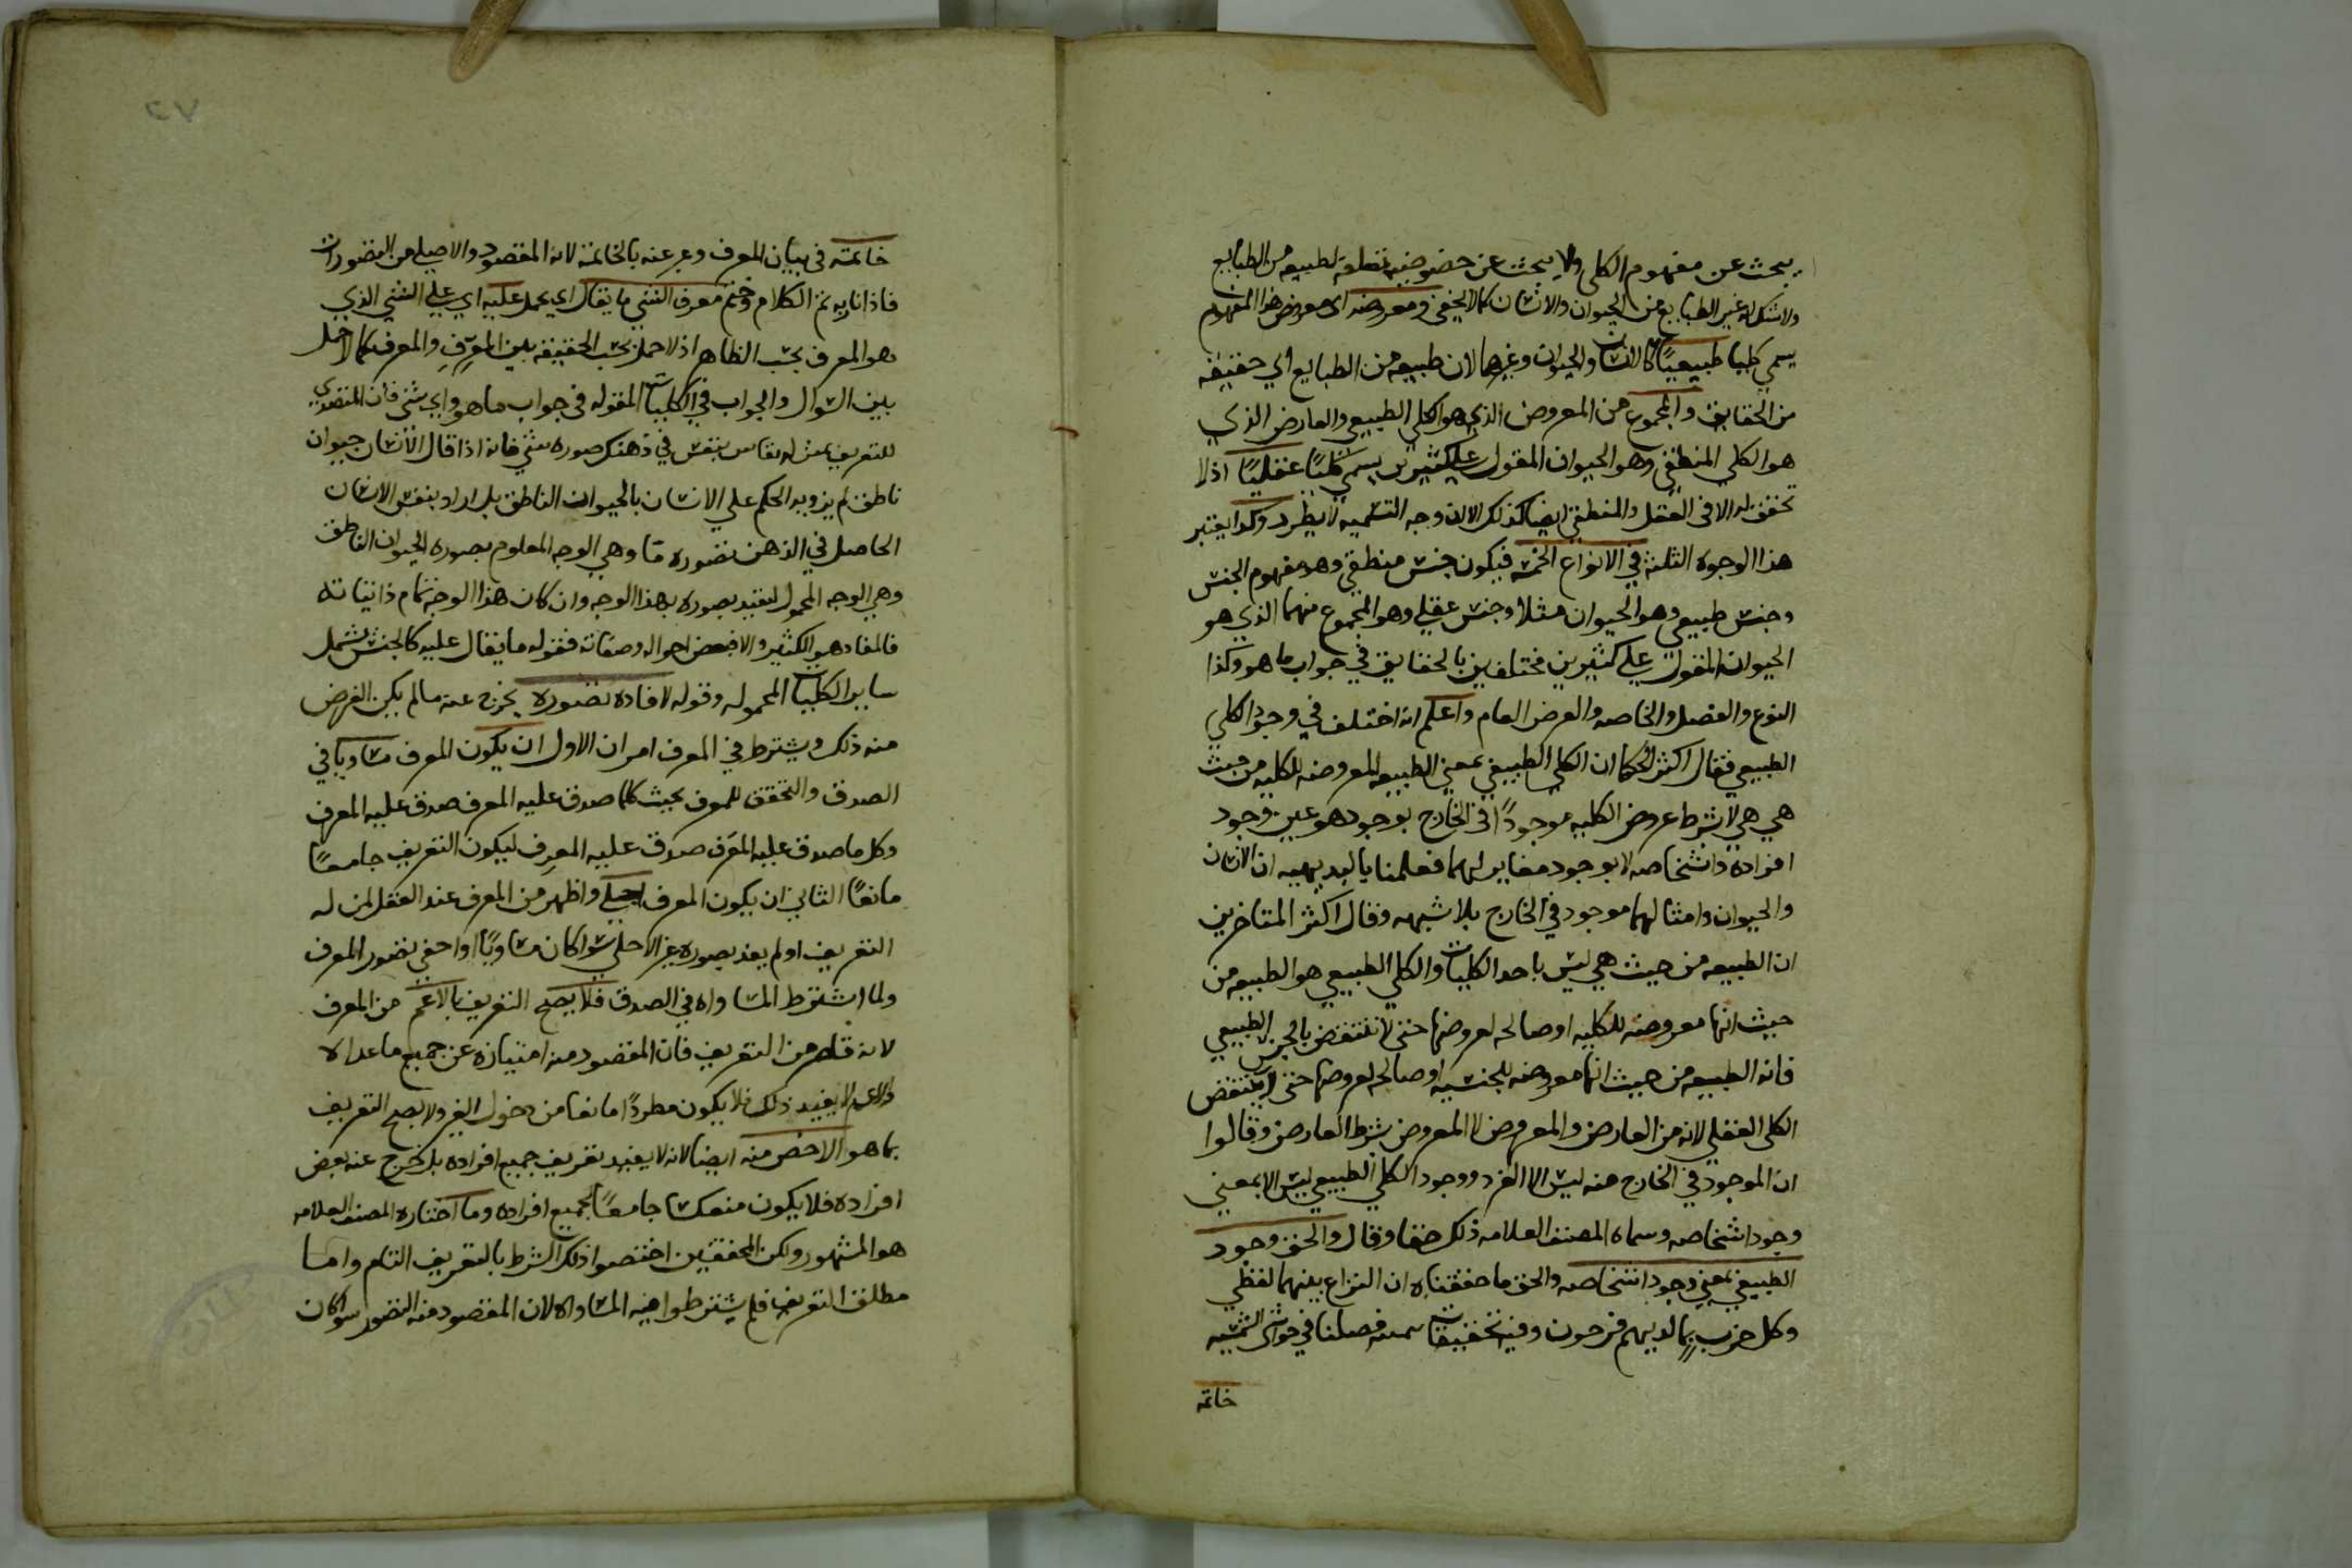 يبحث عن مفهوم الكلى ولا يبحث عن خصوصيه متعلقة لطبيعه من الطبايع
ولا شك انه غير الطبايع من الحيوان والانسان كما لا يخفى ومعروضه اى معروض هذا المفهوم
يسمى كليا طبيعيًا كالانسان والحيوان وغيرهما لان طبيعه من الطبايع اي حقيقه
من الحقايق والمجموع من المعروض الذي هو الكلي الطبيعي والعارض الذي
هو الكلي المنطقي وهو الحيوان المقول على كثيرين يسمى كليًا عقليًا اذ لا
تحقق له الا فى العقل والمنطقي ايضا كذلك الا ان وجه التسميه لا يطرد وكذا يعتبر
هذا الوجوه الثلثه في الانواع الخمسه فيكون جنس منطقي وهو مفهوم الجنس
وجنس طبيعي وهو الحيوان مثلا وجنس عقلي وهو المجموع منهما الذي هو
الحيوان المقول على كثيرين مختلفين بالحقايق في جواب ما هو وكذا
النوع والفصل والخاصه والعرض العام واعلم انه اختلف في وجود الكلي
الطبيعي فقال اكثر الحكما ان الكلي الطبيعي بمعنى الطبيعه المعروضه للكليه من حيث
هي هي لا بشرط عروض الكليه موجودًا فى الخارج بوجود هو عين وجود
افراده واشخاصه لا بوجود مغاير لهما فعلمنا بالبديهيه ان الانسان
والحيوان وامثالهما موجود في الخارج بلا شبهه وقال اكثر المتاخرين
ان الطبيعه من حيث هي ليس باحد الكليات والكلي الطبيعي هو الطبيعه من
حيث انها معروضه للكليه او صالحه لعروضها حتى لا تنتقض بالجنس الطبيعي
فانه الطبيعه من حيث انها معروضه للجنسيه او صالحه لعروضها حتى لا ينتقض
الكلى العقلي لانه من العارض والمعروض لا المعروض بشرط العارض وقالوا
ان الموجود في الخارج منه ليس الا الفرد ووجود الكلي الطبيعي ليس الا بمعنى
وجود اشخاصه وسماه المصنف العلامه ذلك حقا وقال والحق وجود
الطبيعي بمعنى وجود اشخاصه والحق ما حققناه ان النزاع بينهما لفظي
وكل حزب بما لديهم فرحون وفيه تحقيقات فصلنا في حواشى الشمسيه
خاتمه
٢٧
خاتمه فى بيان المعرف وعبر عنه بالخاتمة لانه المقصود والاصلى من التصورات
فاذا اتا به تم الكلام وختم معرف الشي ما يقال اي يحمل عليه اي على الشي الذي
هو المعرف بحسب الظاهر اذ لا حمل بحسب الحقيقه بين المعرِّف والمعرف كما لا حمل
بين السوال والجواب في الكليات المقوله فى جواب ما هو واي شي فان المتصدي
للتعريف بمثابه نقاش ينقش في ذهنك صوره شي فانه اذا قال الانسان حيوان
ناطق لم يرد به الحكم على الانسان بالحيوان الناطق بل اراد بنقش الانسان
الحاصل في الذهن بتصوره ما وهي الوجه المعلوم بصوره الحيوان الناطق
وهي الوجه المجهول ليفيد بصوره بهذا الوجه وان كان هذا الوجه تمام ذاتياته
فالمفاد هو الكثير والا فبعض احواله وصفاته فقوله ما يقال عليه كالجنس يشمل
ساير الكليات المحموله وقوله لافاده تصوره يخرج عنه ما لم يكن الغرض
منه ذلك ويشترط في المعرف امران الاول ان يكون المعرف مساويا في
الصدق والتحقق للمعرف بحيث كلما صدق عليه المعرف صدق عليه المعرف
وكل ما صدق عليه المعرَف صدق عليه المعرِف ليكون التعريف جامعًا
مانعًا الثاني ان يكون المعرف اجلى واظهر من المعرف عند العقل لمن له
التعريف او لم يفد بصوره غير الاجلى سوا كان مساويًا او اخفى تصور المعرف
ولما اشترط المساواه في الصدق فلا يصح التعريف بالاعم من المعرف
لانه قاصر من التعريف فان المقصود منه امتيازه عن جميع ما عداه
والاعم لا يفيد ذلك فلا يكون مطردًا مانعا من دخول الغير ولا يصح التعريف
بما هو الاخص منه ايضا لانه لا يفيد تعريف جميع افراده بل خرج عنه بعض
افراده فلا يكون منعكسا جامعًا لجميع افراده وما اختاره المصنف العلامه
هو المشهور ولكن المحققين اختصوا ذلك الشرط بالتعريف التام واما
مطلق التعريف فلم يشترطوا فيه المساواه لان المقصود منه التصور سوا كان